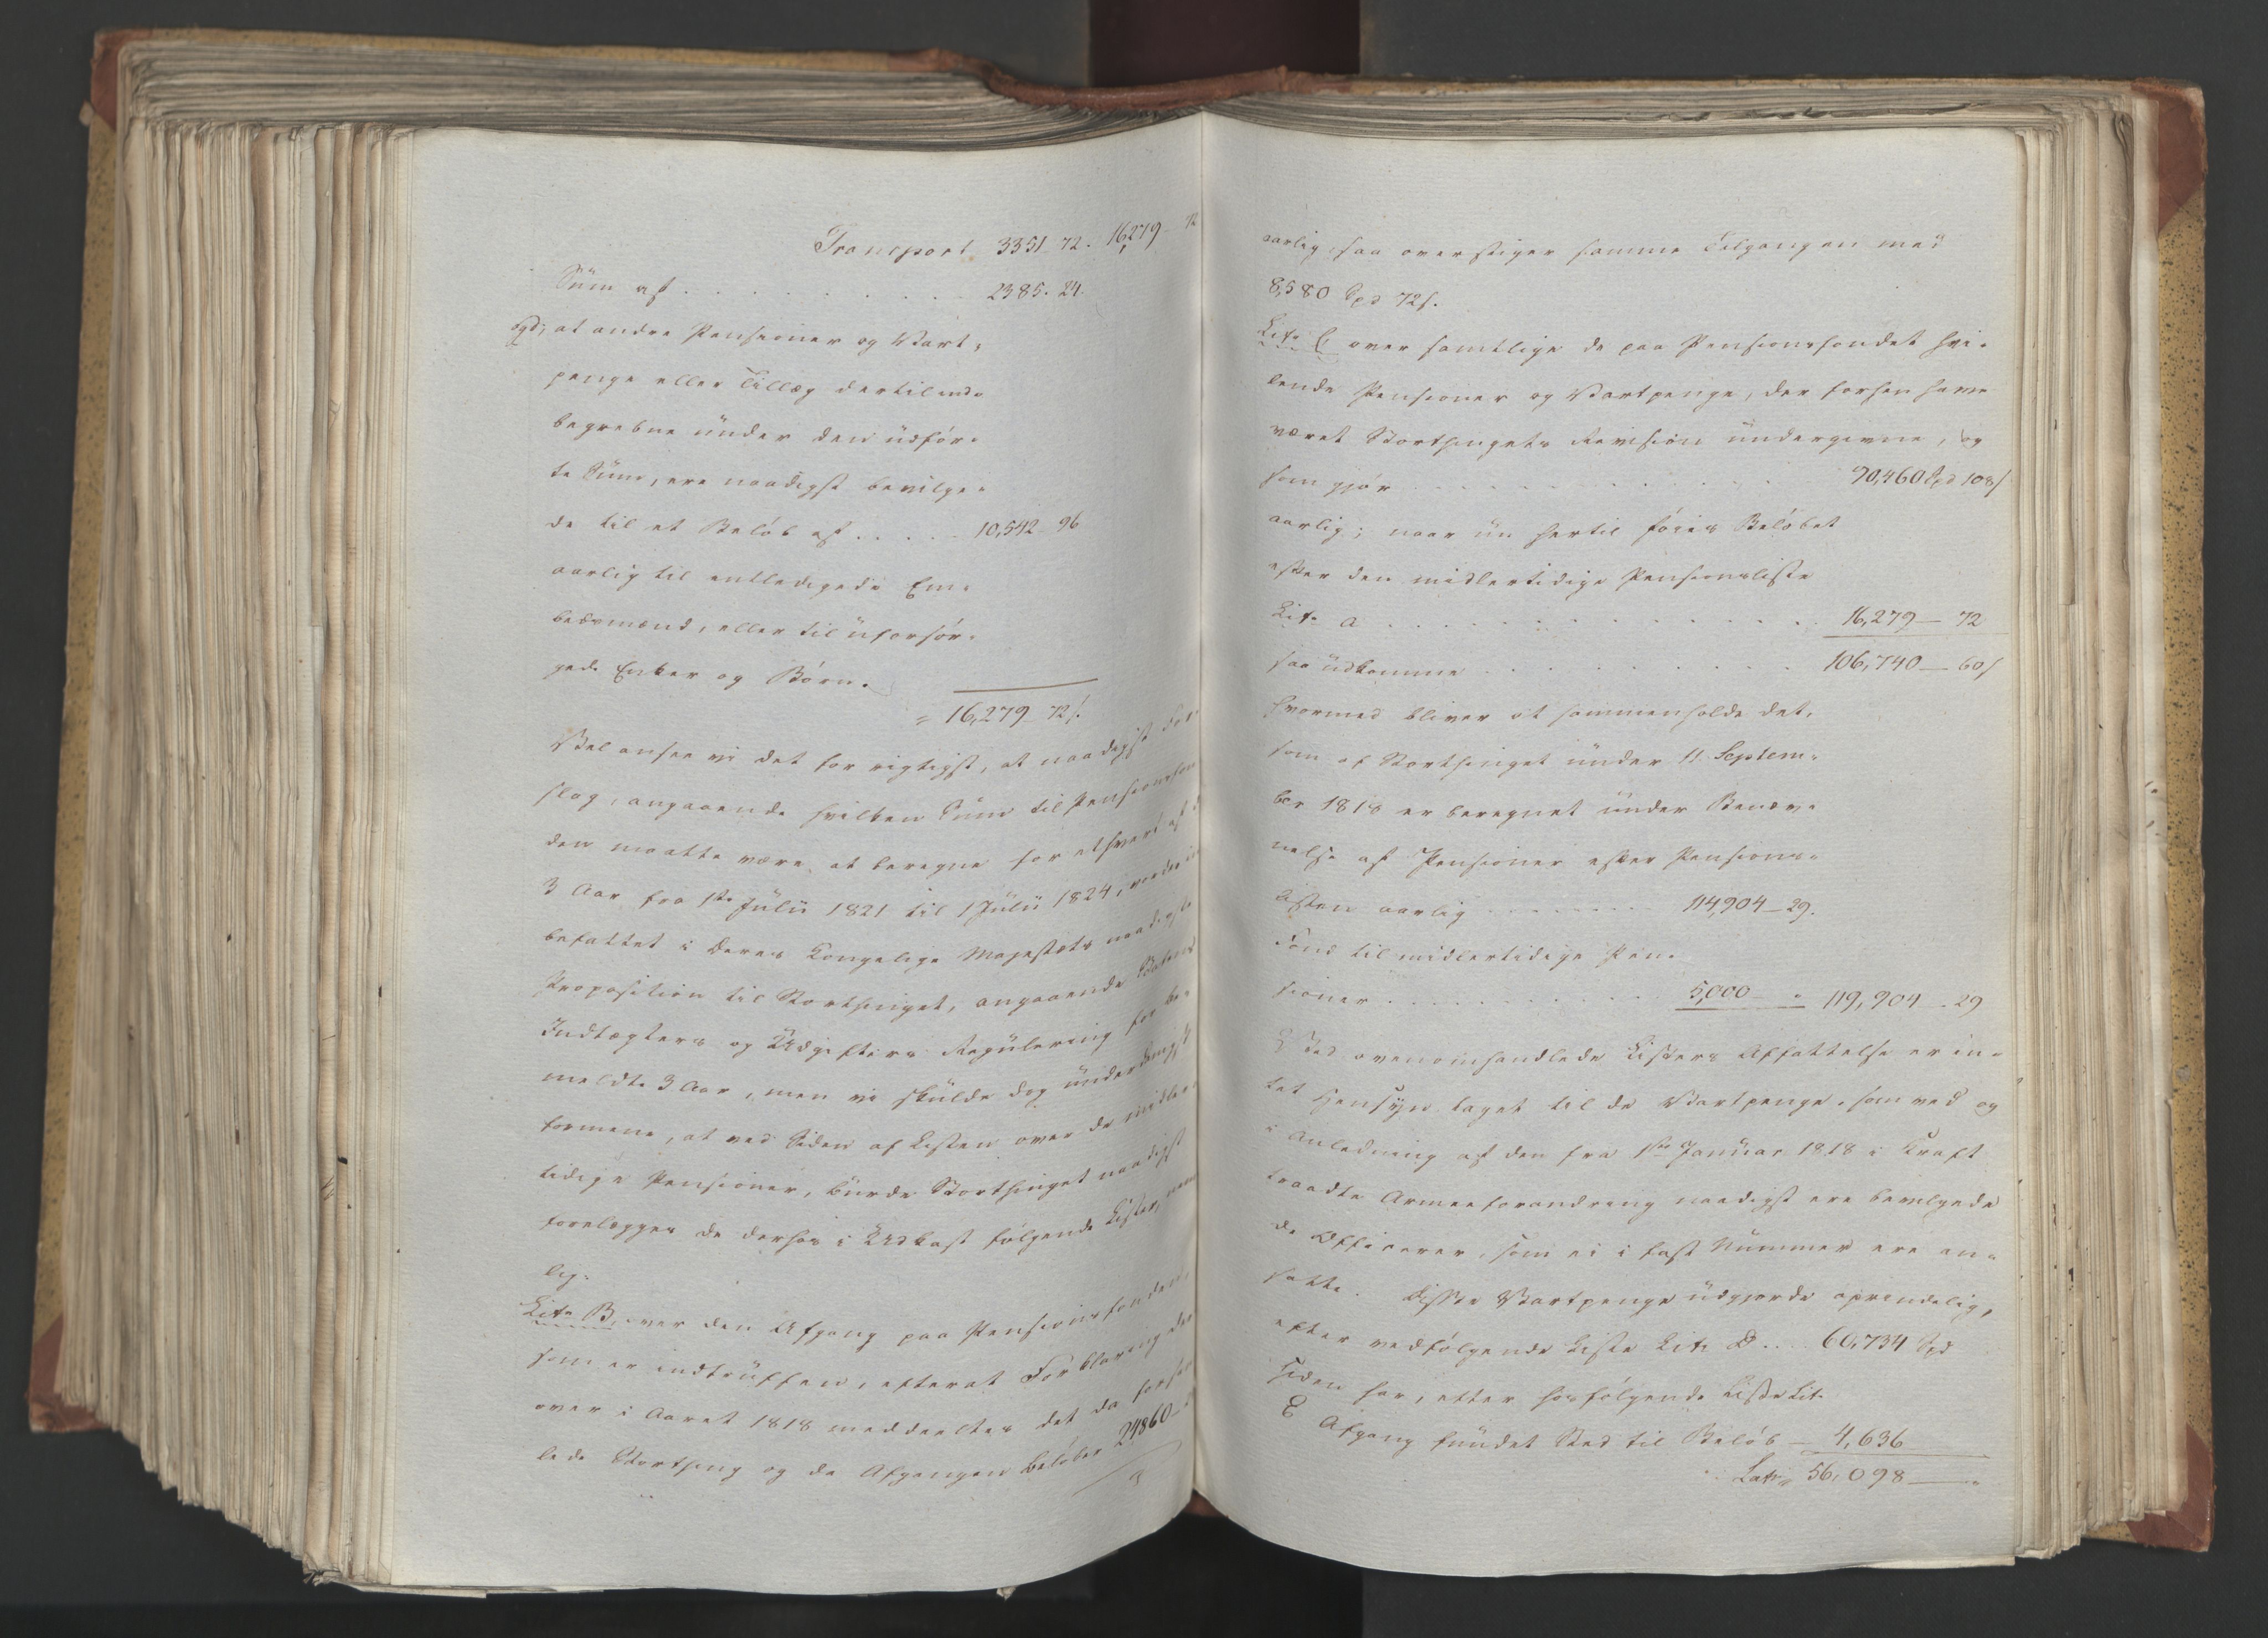 Transport 3351. 72. 16,279 - 72
Sum af . . . . . . . . . . 2385. 24.
og d, at andre Pensioner og Vart-
penge eller Tillæg dertil ind-
begrebne under den udfør-
te Sum, ere naadigst bevilge-
de til et Beløb af . . . . . 10,542 - 96
aarlig til entledigede Em-
bedsmænd, eller til uforsør-
gede Enker og Børn.
= 16,279 - 72 s.
Vel ansee vi det for rigtigst, at naadigst For-
slag, angaaende hvilken Sum til Pensionsfon-
den maatte være at beregne for ethvert af
3 Aar fra 1ste Julii 1821 til 1 Julii 1824, vorder
befattet i Deres Kongelige Majestæts naadigste
Proposition til Storthinget, angaaende Statens
Indtægters og Udgifters Regulering for be-
meldte 3 Aar, men vi skulde dog underdanigst
formene, at ved Siden af Listen over de midler-
tidige Pensioner, burde Storthinget naadigst
forelægges de derhos i Udkast følgende Lister, nem-
lig:
Lit. B, over den Afgang paa Pensionsfonden,
som er indtruffen, efterat Forklaring der-
over i Aaret 1818 meddeeltes det da forsam-
lede Storthing og da Afgangen beløber 24860 -
aarlig, saa overstiger samme Tilgangen med
8,580 Spd 72 s.
Lit. C over samtlige de paa Pensionsfondet hvi-
lende Pensioner og Vartpenge, der forhen have
været Storthingets Revision undergivne, og
som gjør . . . . . . . . . . 90,460 Spd 108 s
aarlig; naar nu hertil føies Beløbet
efter den midlertidige Pensionsliste
Lit. A . . . . . . . . . . . . . 16,279 - 72
saa udkomme . . . . . . . . . 106,740 - 60 s
hvormed bliver at sammenholde det,
som af Storthinget under 11 Septem-
ber 1818 er beregnet under Benæv-
nelse af Pensioner efter Pensions-
listen aarlig . . . . . . . 114,904 - 29.
Fond til midlertidige Pen-
sioner . . . . . . . . . . 5,000 - " 119,904 - 29
Ved ovenomhandlede Listers Affattelse er in-
tet Hensyn taget til de Vartpenge, som ved og
i Anledning af den fra 1ste Januar 1818 i Kraft
traadte Armeeforandring naadigst ere bevilgede
de Officerer, som ei i fast Nummer ere an-
satte. Disse Vartpenge udgjorde oprindelig,
efter vedfølgende Liste Lit. D . . . . 60,734 Spd
siden har, efter hosfølgende Liste Lit.
E Afgang fundet Sted til Beløb - 4,636
Lat. 56,098 - "